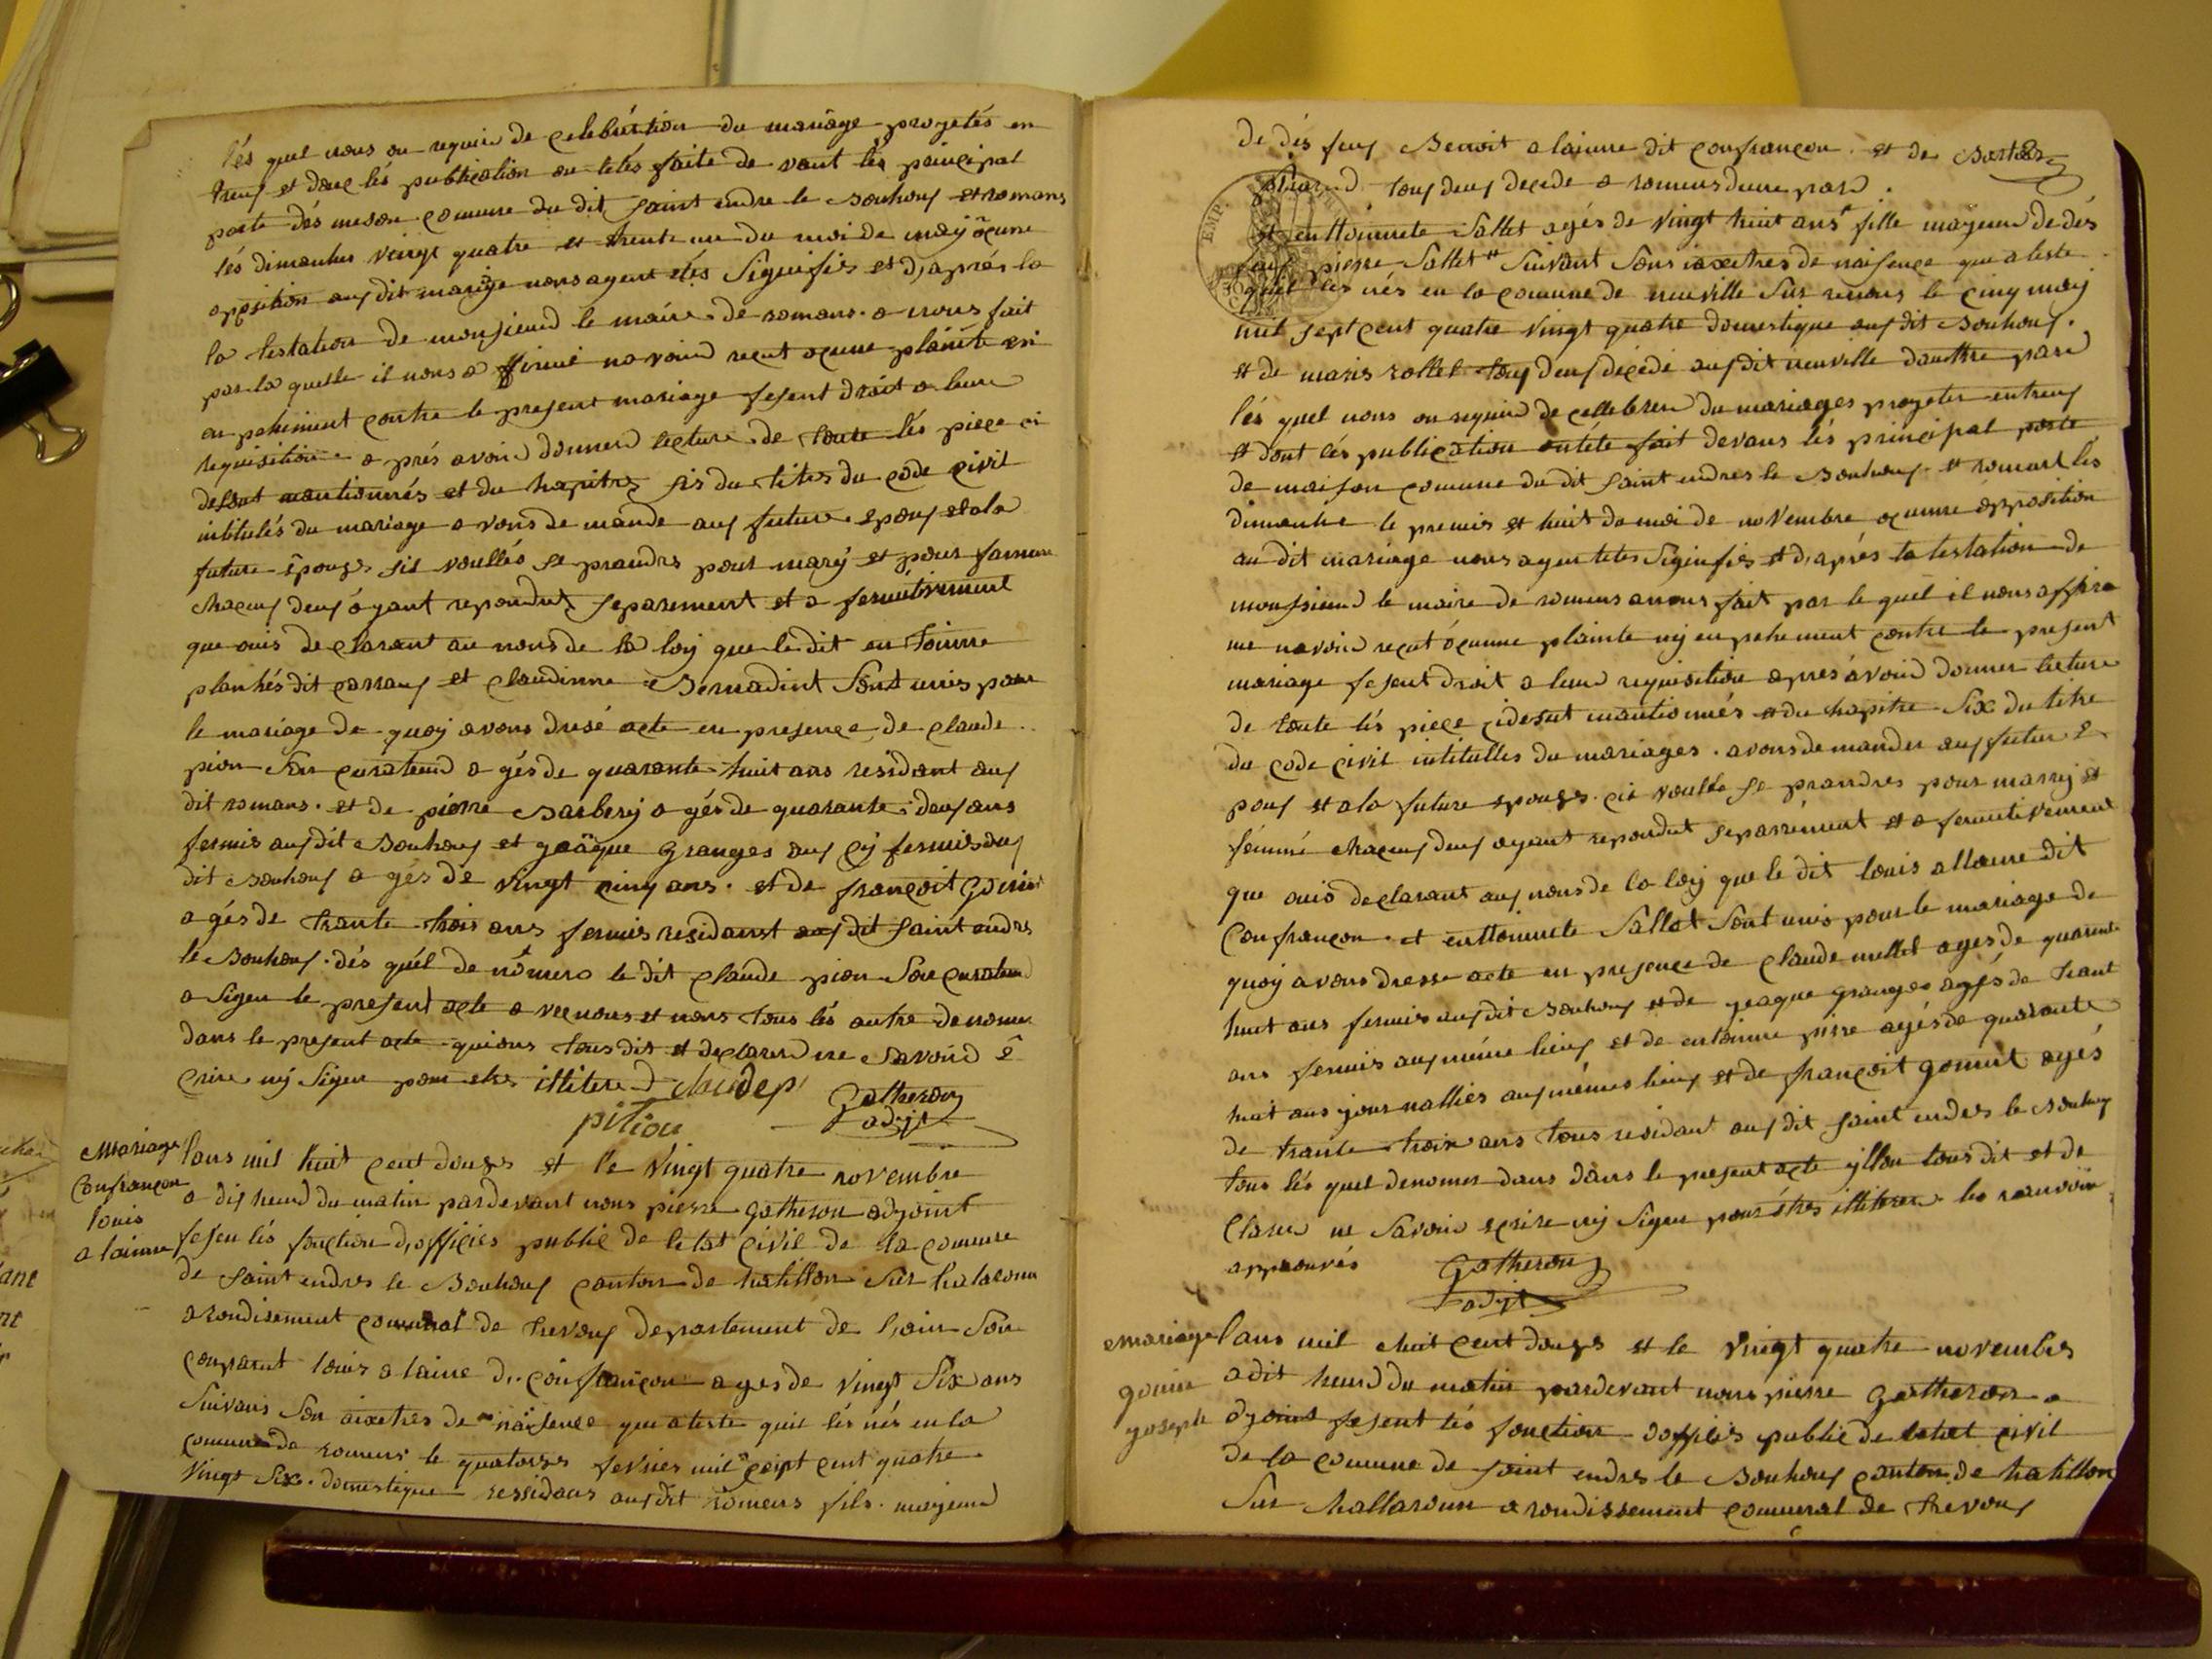 lés quel nous on requie de celebration du mariage progetés en
treuf et donc lés publication on tetés faite de vant lés principal
porte dés meson comune du dit saint endre le Bouhouf et romans
lés dimanches vingt quatre et trente un du moi de may ocune
oposition auf dit mariage nons agent etés Signifiés et d'aprés la
la testation de monsieud le maire de romans a nous fait
par la quelle il nous a ffirmé navoird recut ocune plainte ni
en pechement contre le present mariage fesent droit a leur
requisition a prés avoird donnerd lecture de toute lés piece ci
desout mantionnés et du hapitre sis du titre du code civil
intitulés du mariage a vons de mande auf future epouf et a la
future épouse sis voullés se prandre pour mary et pour famme
chacuf deuf ayant repondut separement et a fermitivement
que ouis declarant au nons de la loy que le dit en toinne
planhés dit carrauf et claudinne Bernadint Sont unis pour
le mariage de quoy avons dresé acte en presence de claude
pion Son curateurd a gés de quarante huit ans residant auf
dit romans et de pierre Barbery a gés de quarante deuf ans
fermis auf dit Bouhouf et gaäque granges auf cy fermis auf
dit Bouhouf a gés de vingt cinq ans et de françoit gonin
a gés de trante trois ans fermis residant auf dit saint endre
le Bouhouf dés quél de nomero le dit claude pion Son curateurd
a Signe le present acte a vecnous et nons tous lés autre denomer
dans le present acte qui ons tous dit et declarerd ne Savoird é
crire ny Signer pour etre illitere claude p
pition
Gatheron
adjt
Mariage
Confrançon
louis
a lainne
lans mil huit cent douze et le vingt quatre novembre
a dix heurd du matin pardevant nous pierre gatheron adjoint
fesen lés fonction d'officies public de letat civil de la comune
de saint endres le Bouhouf canton de hatillon Sur halaronn
arondisement comunal de trevouf departement de l'ain Son
conparut louis a laine d.. confrançon a gés de vingt Six ans
Suivans Son aixetrés de naisence que ateste quil lés nés en la
comune de romens le quatorze fevries mil cept cent quatre
vingt Six domestique ressidans auf dit romens fils majeurd
EMP.
de dés feuf Benoit a lainne dit confrançon et de
tous deuf decede a romens dune pard
et enttoinnete Sallet agés de vingt huit ans fille majeure de dés
feuf pierre Sallet Suivant Sons de naisence que ateste
quel lés nés en la comune de neuville Sur renons le cinq may
mil sept cent quatre vingt quatre domestique auf dit Bouhouf
et de maris rollet tous deuf décédé auf dit neuville dauttre pard
lés quel nous on requie de cellebrerd du mariages progeter entreuf
et dont lés publication ontété fait devans lés principal porte
de maison comune du dit saint endres le Bouhouf et romans lés
dimanche le premis et huit du moi de novembre ocunne opposition
au dit mariage nons ayen tetes Signifiés et d'aprés la testation de
monsieurd le maire de romens anous fait par le quél il nous affira
me navoird recut ocunne plainte ny en pechement contre le present
mariage fesent droit a leurd requisition aprés avoird donner lecture
de toute lés piece cidesut mantionnés et du hapitre Six du titre
du code civil intitulles du mariages avons demander auf futur é
pouf et a la future epouge cis voullés se prandres pour marry et
fémmé chacuf deuf ayant repondut separrément et a fermitivement
que ouis declarant auf nons de la loy que le dit louis allaine dit
Confrançon et enttoinnete Sallet Sont unis pour le mariage de
quoy avons dresse acte en presence de claude mellet agés de quarente
huit ans fermis auf dit Bouhouf et de geaque granges agés de trant
ans fermis auf même lieuf et de entoinne pirre agés de quarante
huit ans journallies auf mémes lieuf et de françoit gonint agés
de trante trois ans tous residant auf dit saint endres le Bouhouf
tous lés quel denomer dans dans le present acte yllon tous dit et de
Clarer ne Savoird ecrire ny Signer pour étres illiterer les
approuvés
Gatheron
adjt
mariage
gonin
joseph
lans mil huit cent douze et le vingt quatre novembre
a dit heurd du matin pardevant nous pierre gatheron a
djoint fesent lés fonction dofficiés public de letat civil
de la comune de saint endres le Bouhouf canton de hatillon
Sur hallaronn arondissement comunal de trevouf